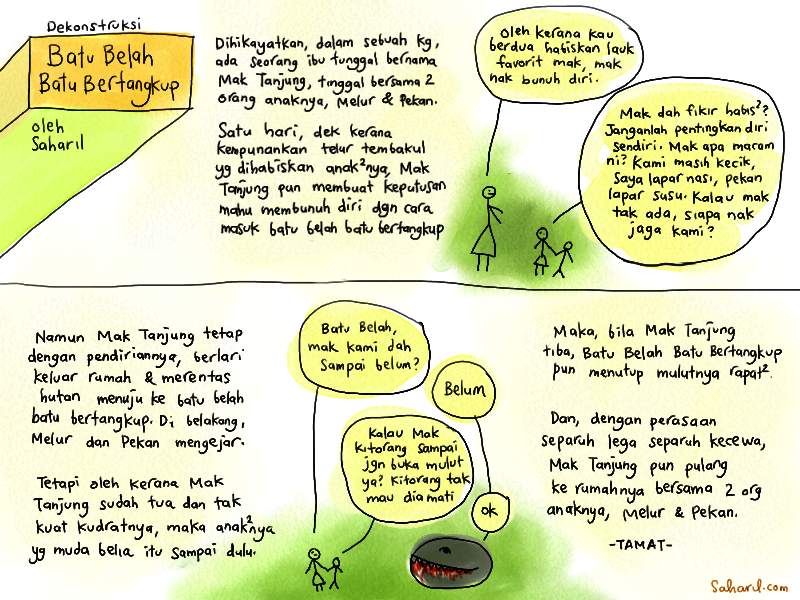 Dekonstruksi
Batu Belah
Batu Bertangkup
oleh
Saharil
Dihikayatkan, dalam sebuah kg,
ada seorang ibu tunggal bernama
Mak Tanjung, tinggal bersama 2
orang anaknya, Melur & Pekan.
Satu hari, dek kerana
kempunankan telur tembakul
yg dihabiskan anak²nya, Mak
Tanjung pun membuat keputusan
mahu membunuh diri dgn cara
masuk batu belah batu bertangkup
Oleh kerana kau
berdua habiskan lauk
favorit mak, mak
nak bunuh diri.
Mak dah fikir habis²?
Janganlah pentingkan diri
sendiri. Mak apa macam
ni? Kami masih kecik,
Saya lapar nasi, pekan
lapar susu. Kalau mak
tak ada, siapa nak
jaga kami?
Namun Mak Tanjung tetap
dengan pendiriannya, berlari
keluar rumah & merentas
hutan menuju ke batu belah
batu bertangkup. Di belakang,
Melur dan Pekan mengejar.
Tetapi oleh kerana Mak
Tanjung sudah tua dan tak
kuat kudratnya, maka anak²nya
yg muda belia itu sampai dulu.
Batu Belah,
mak kami dah
Sampai belum?
Belum
Kalau Mak
kitorang sampai
jgn buka mulut
ya? Kitorang tak
mau dia mati
ok
Maka, bila Mak Tanjung
tiba, Batu Belah Batu Bertangkup
pun menutup mulutnya rapat².
Dan, dengan perasaan
separuh lega separuh kecewa,
Mak Tanjung pun pulang
ke rumahnya bersama 2 org
anaknya, Melur & Pekan.
-TAMAT-
Saharil.com